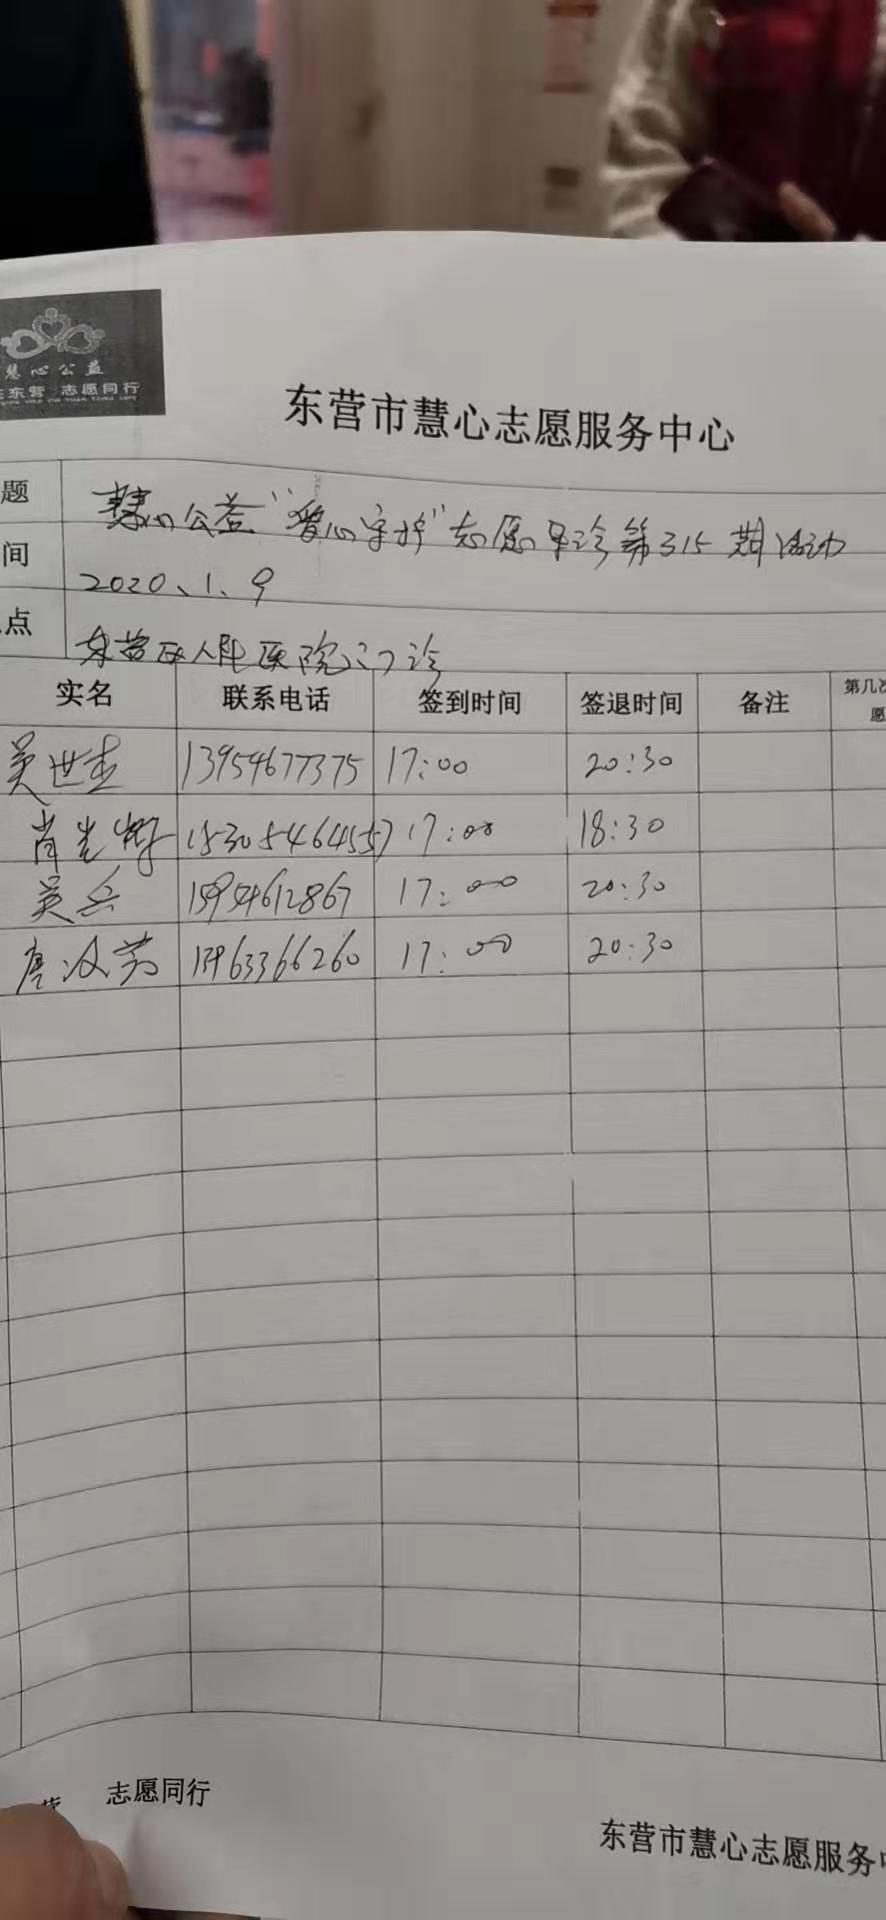 慧心公益
东营 志愿同行
东营市慧心志愿服务中心
题 慧心公益“爱心守护”志愿导诊第315期活动
间 2020、1、9
点 东营区人民医院门诊
实名 联系电话 签到时间 签退时间 备注 第几次
愿
吴世杰 13954677375 17:00 20:30
肖 15305464557 17:00 18:30
吴兵 15954612867 17:00 20:30
唐汝芳 13963366260 17:00 20:30
志愿同行
东营市慧心志愿服务中